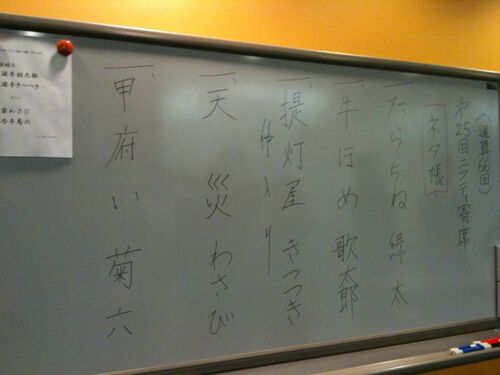 (通算66回)
第25回ニフティ寄席
ネタ帳
一、たらちね 緑太
一、牛ほめ 歌太郎
一、提灯屋 きつつき
仲入り
一、天災 わさび
一、甲府い 菊六